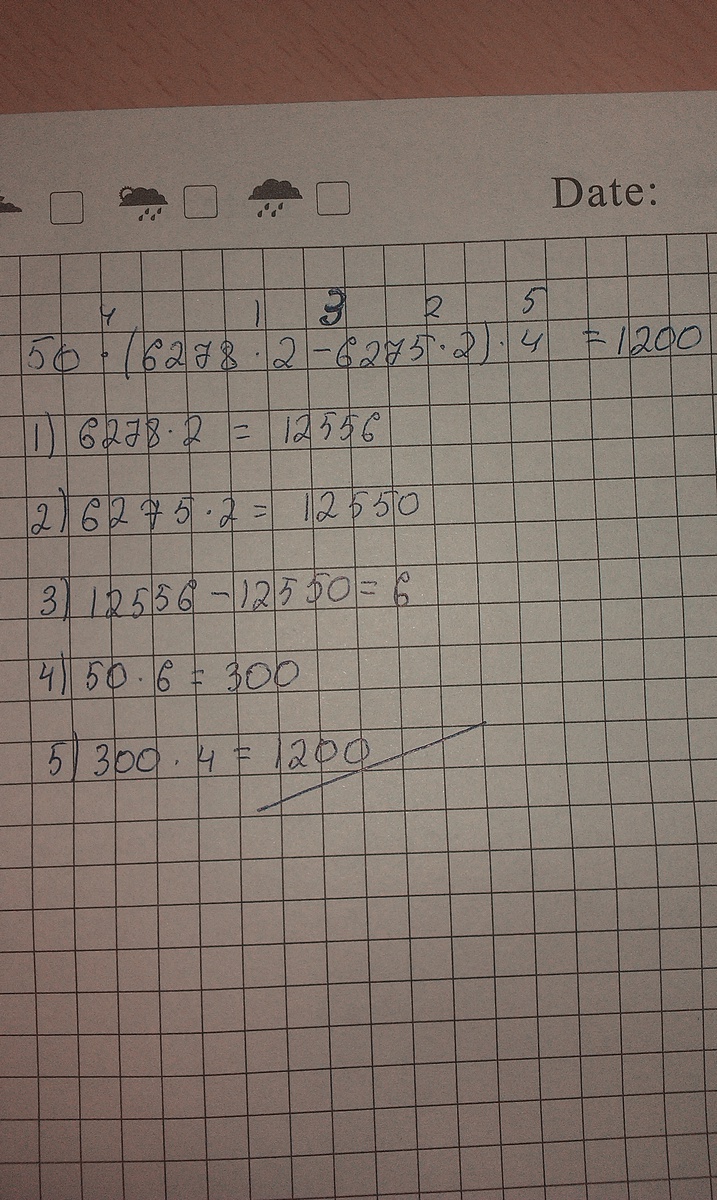 Date:
4 1 3 2 5
50 · (6278 · 2 - 6275 · 2) · 4 = 1200
1) 6278 · 2 = 12556
2) 6275 · 2 = 12550
3) 12556 - 12550 = 6
4) 50 · 6 = 300
5) 300 · 4 = 1200